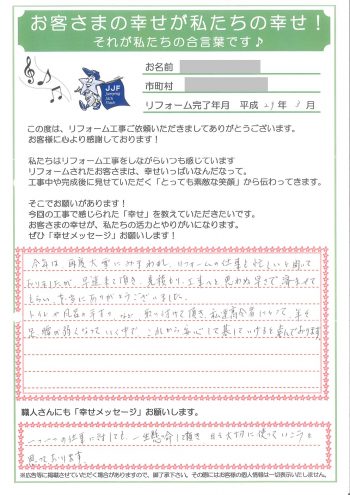 お客さまの幸せが私たちの幸せ！
それが私たちの合言葉です♪
お名前
市町村
JJF
リフォーム完了年月　平成29年3月
この度は、リフォーム工事ご依頼いただきましてありがとうございます。
お客様に心より感謝しております！
私たちはリフォーム工事をしながらいつも感じています
リフォームされたお客さまは、幸せいっぱいなんだなって。
工事中や完成後に見せていただく「とっても素敵な笑顔」から伝わってきます。
そこでお願いがあります！
今回の工事で感じられた「幸せ」を教えていただきたいです。
お客さまの幸せが、私たちの活力とやりがいになります。
ぜひ「幸せメッセージ」お願いします！
今年は、再度大雪にみまわれ、リフォームの仕事も忙しいと思って
おりましたが、早速来て頂き、見積もり、工事へと思わぬ早さで済ませて
もらい、本当にありがとうございました。
トイレや風呂の手すりなど、取り付けて頂き、私達高令者にとって、年々
足、腰の弱くなっていく中で、これから安心して暮していけると喜んでおります
職人さんにも「幸せメッセージ」お願いします。
一つ一つの仕事に対しても、一生懸命して頂き 日々大切に使っていこうと
思っております
※広告等に掲載させていただく場合がありますので、御了承下さい。その際にはお客様の個人情報は一切表示いたしません。